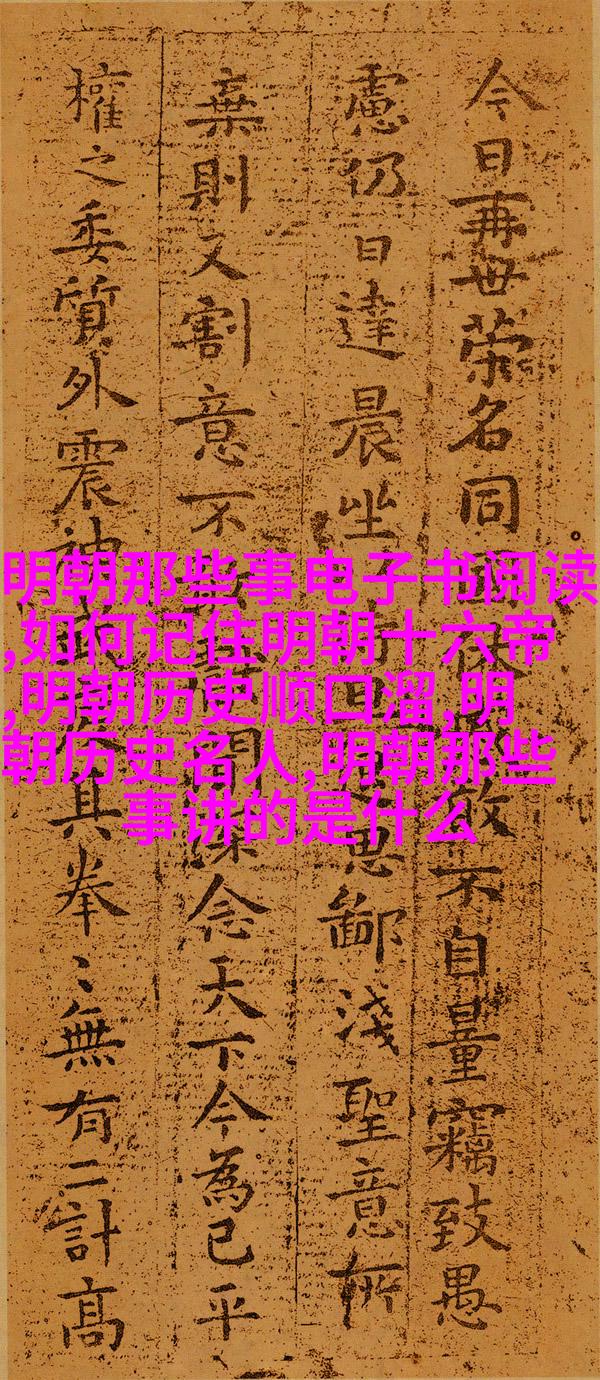 今日再世榮名同休敢不自量竊致愚
慮仍日達晨坐待旦思鄙淺聖意所
棄則又割意不聞深念天下今為已平
權之委質外震神其拳〻無有二計高
明朝那些事电子书阅读
,如何记住明朝十六帝
,明朝历史顺口溜,明
朝历史名人,明朝那些
事讲的是什么